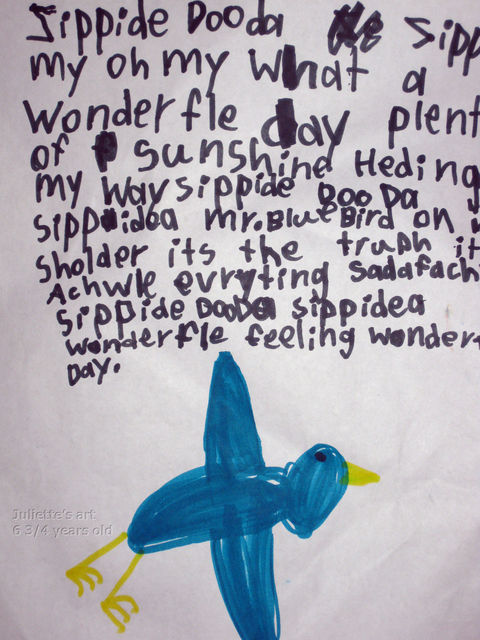 Sippide Dooda the Sipp
my oh my What a
Wonderfle day plent
of sunshine Heding
my way sippide Dooda
sippidea mr.Blue Bird on m
sholder its the truph it
Achwle evryting sadafach
Sippide Dooda sippidea
wonderfle feeling wonder
Day.
Juliette's art
6 3/4 years old